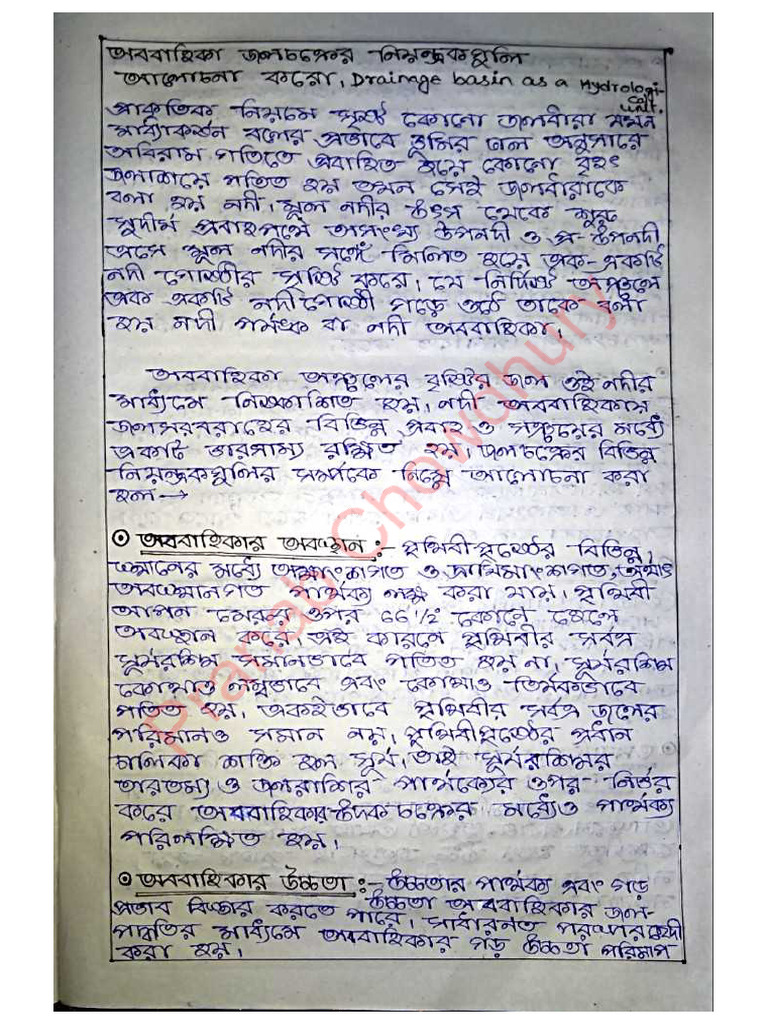 অববাহিকা জলচক্রের নিয়ন্ত্রকগুলি
আলোচনা করো। Drainage basin as a Hydrologi-
cal unit.
প্রাকৃতিক নিয়মে সৃষ্ট কোনো জলধারা যখন
মাধ্যাকর্ষন বলের প্রভাবে ভূমির ঢাল অনুসারে
অবিরাম গতিতে প্রবাহিত হয়ে কোনো বৃহৎ
জলাশয়ে পতিত হয় তখন সেই জলধারাকে
বলা হয় নদী। মূল নদীর উৎস থেকে শুরু
সুদীর্ঘ প্রবাহপথে অসংখ্য উপনদী ও প্র-উপনদী
এসে মূল নদীর সঙ্গে মিলিত হয়ে এক-একটি
নদী গোষ্ঠীর সৃষ্টি করে। যে নির্দিষ্ট অঞ্চলে
এক একটি নদীগোষ্ঠী গড়ে ওঠে তাকে বলা
হয় নদী গর্ভঙ্ক বা নদী অববাহিকা।
অববাহিকা অঞ্চলের বৃষ্টির জল ওই নদীর
মাধ্যমে নিষ্কাশিত হয়। নদী অববাহিকায়
জলসরবরাহের বিভিন্ন প্রবাহ ও সঞ্চয়ের মধ্যে
একটি ভারসাম্য রক্ষিত হয়। জলচক্রের বিভিন্ন
নিয়ন্ত্রকগুলির সম্পর্কে নিম্নে আলোচনা করা
হল →
⊙ অববাহিকার অবস্থান :- পৃথিবীপৃষ্ঠের বিভিন্ন
স্থানের মধ্যে অক্ষাংশগত ও দ্রাঘিমাংশগত, অর্থাৎ
অবস্থানগত পার্থক্য লক্ষ্য করা যায়। পৃথিবী
আপন মেরুর ওপর 66 1/2 কোণে হেলে
অবস্থান করে, এই কারণে পৃথিবীর সর্বত্র
সূর্যরশ্মি সমানভাবে পতিত হয় না। সূর্যরশ্মি
কোথাও লম্বভাবে এবং কোথাও তির্যকভাবে
পতিত হয়, একইভাবে পৃথিবীর সর্বত্র জলের
পরিমানও সমান নয়। পৃথিবীপৃষ্ঠের প্রধান
চালিকা শক্তি হল সূর্য। তাই সূর্যরশ্মির
তারতম্য ও জলরাশির পার্থক্যের ওপর নির্ভর
করে অববাহিকার উদক চক্রের মধ্যেও পার্থক্য
পরিলক্ষিত হয়।
⊙ অববাহিকার উচ্চতা :- উচ্চতার পার্থক্য এবং গড়
উচ্চতা অববাহিকার জল-
প্রভাব বিস্তার করতে পারে। সাধারনত পরস্পরছেদী
পদ্ধতির মাধ্যমে অববাহিকার গড় উচ্চতা পরিমাপ
করা হয়।
Pranab Chowdhury